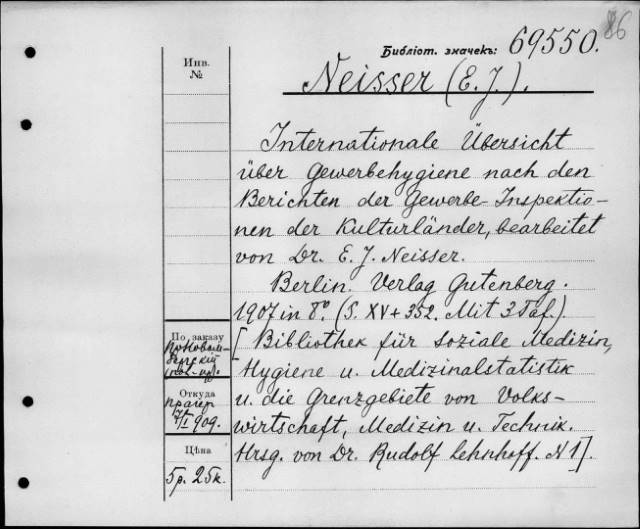 86
Библіот. значекъ: 69550.
Neisser (E. J.).
Инв.
№
Internationale Übersicht
über Gewerbehygiene nach den
Berichten der Gewerbe-Inspektio-
nen der Kulturländer, bearbeitet
von Dr. E. J. Neisser.
Berlin. Verlag Gutenberg.
1907 in 8º. (S. XV + 352. Mit 3 Taf.).
[Bibliothek für soziale Medizin,
Hygiene u. Medizinalstatistik
u. die Grenzgebiete von Volks-
wirtschaft, Medizin u. Technik.
Hrsg. von Dr. Rudolf Lehnhoff. N 1].
По заказу
Откуда
Прагер
1909.
Цѣна
5р. 25к.